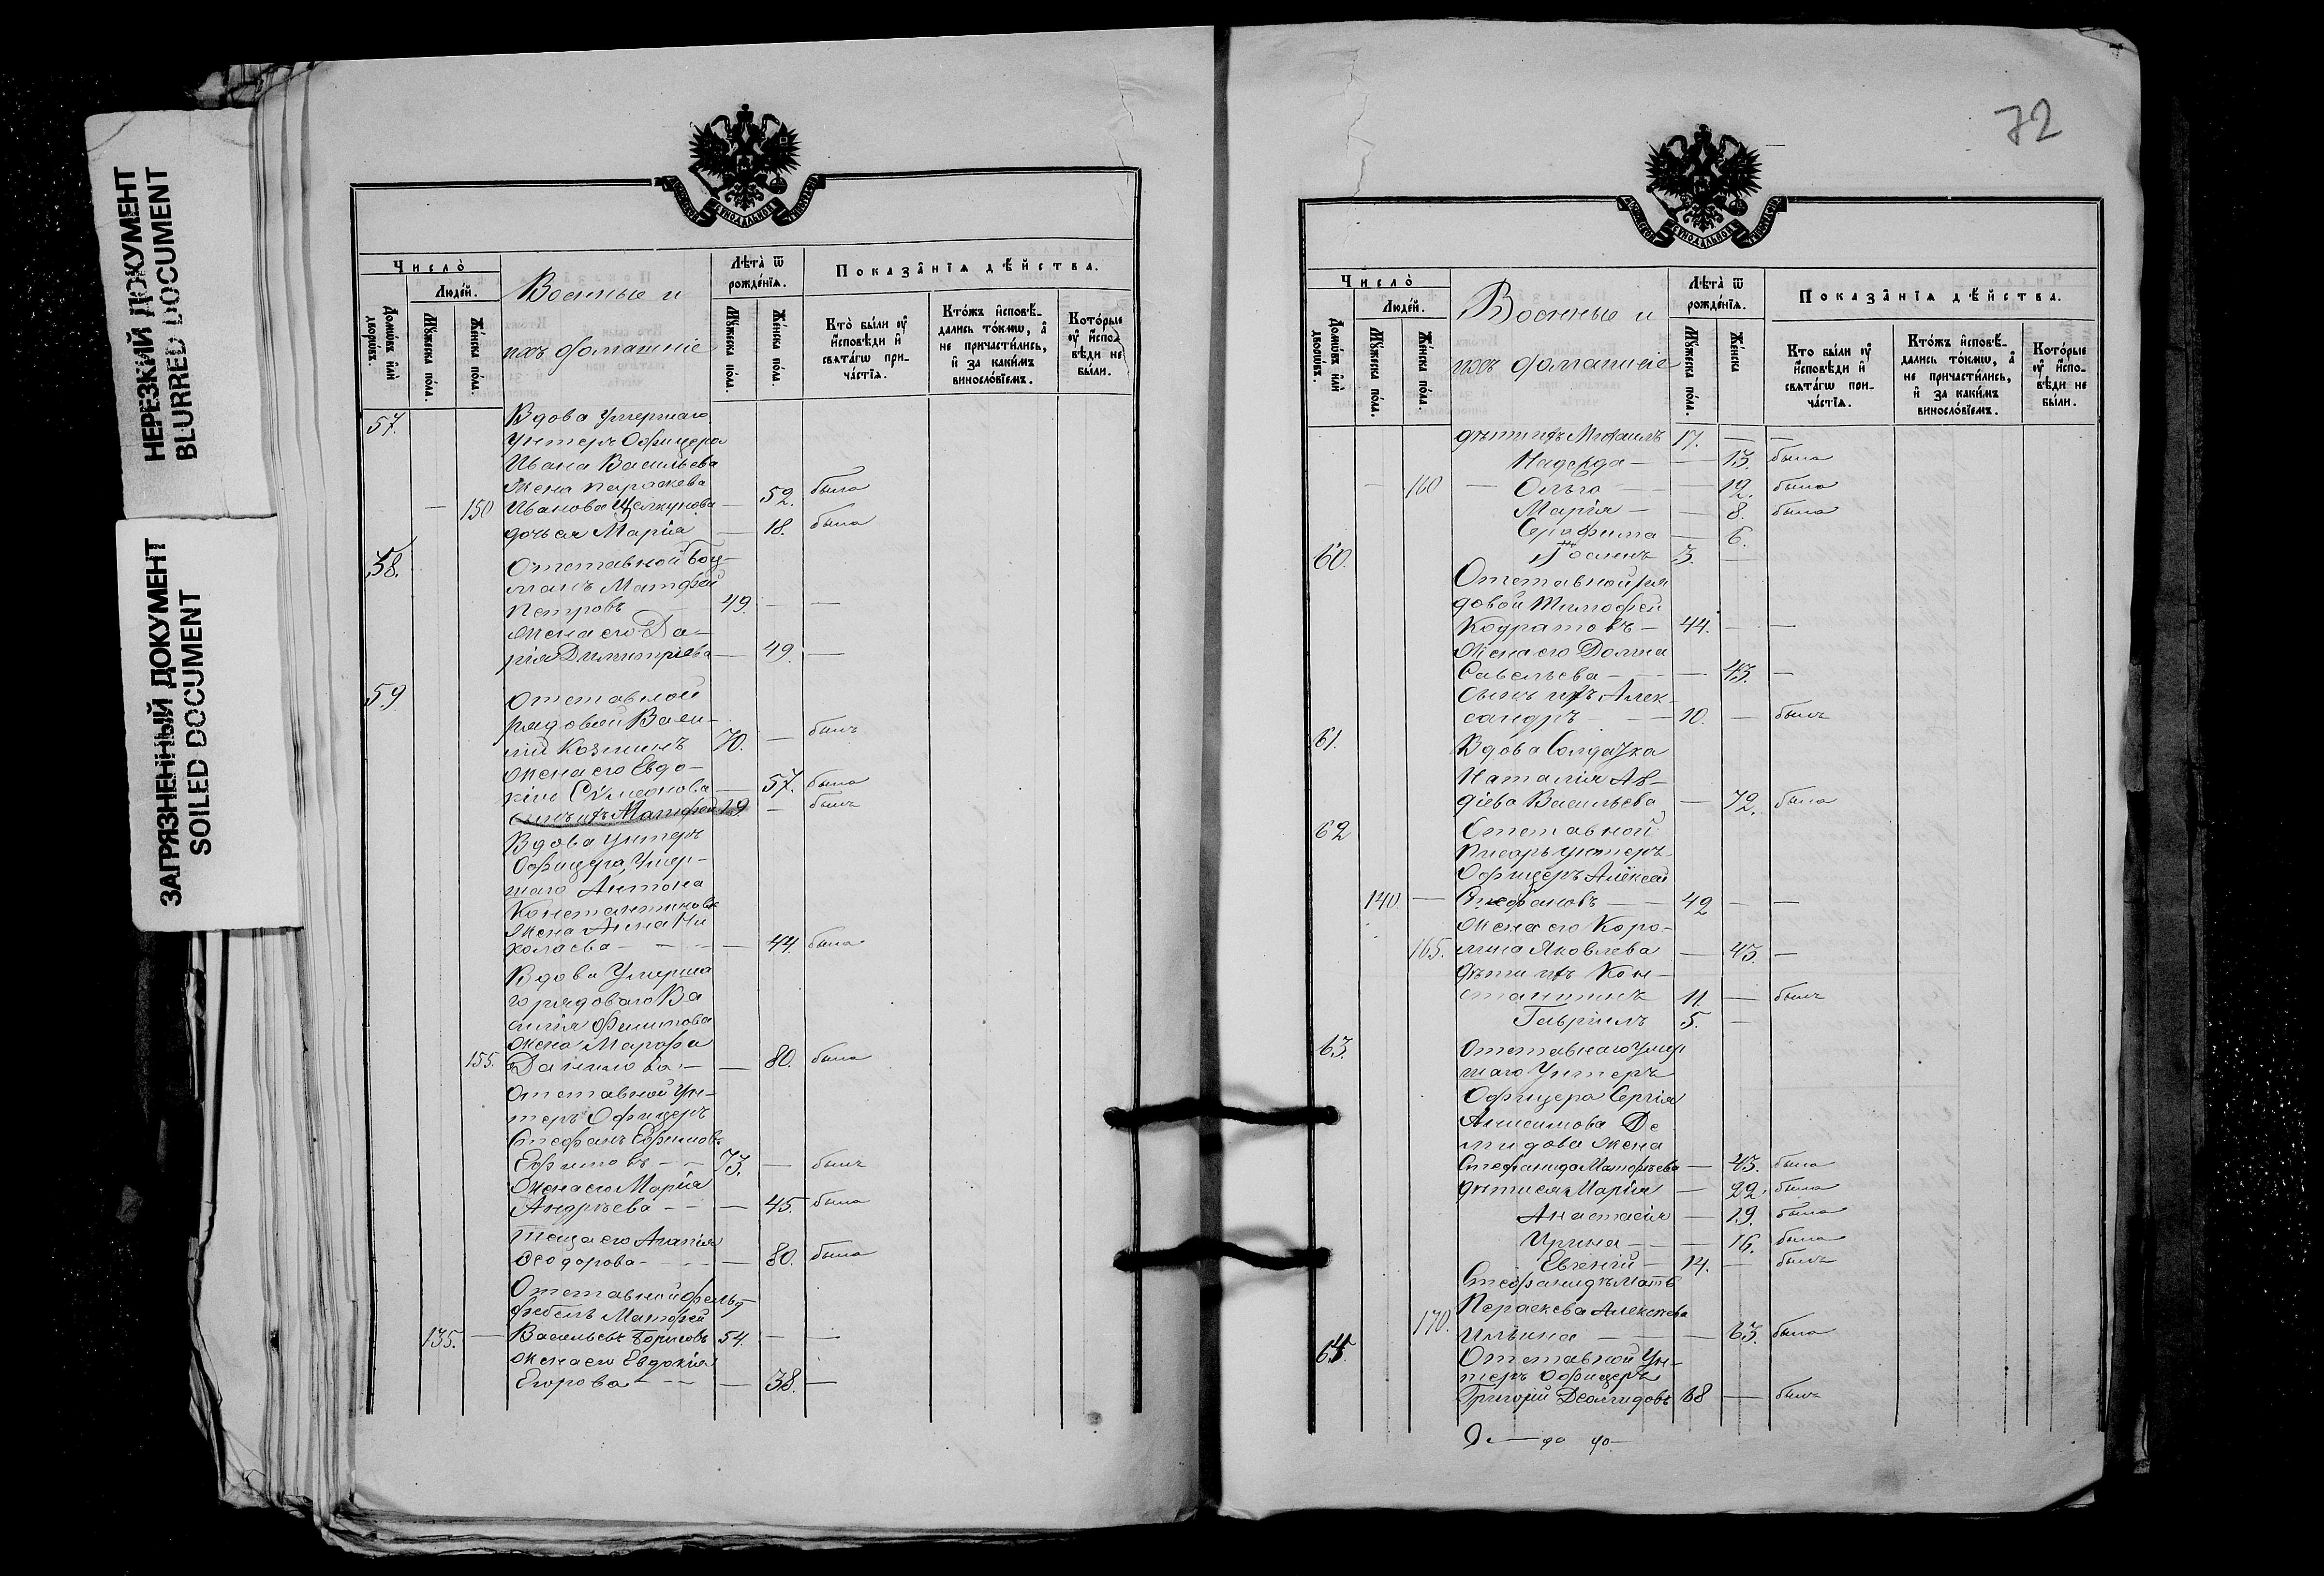 НЕРЕЗКИЙ ДОКУМЕНТ
BLURRED DOCUMENT
ЗАГРЯЗНЕННЫЙ ДОКУМЕНТ
SOILED DOCUMENT
Число̀
Людéй.
Домѡ́въ и҆лѝ дворѡ́въ.
Мꙋ́жеска пóла.
Жéнска пóла.
Военные и
ихъ домашніе
Лѣ́та ѿ рождéнїѧ.
Мꙋ́жеска пóла.
Жéнска пóла.
Показа̂нїѧ дѣ́йства.
Кто̀ бы́ли ᲂу҆ и҆́сповѣди и҆ свѧта́гѡ причáстїѧ.
Ктóжъ и҆сповѣ́дались тóкмѡ, а҆ не причасти́лись, и҆ за каки́мъ винослóвїемъ.
Котóрые ᲂу҆ и҆́сповѣди не бы́ли.
57. Вдова умершаго
Унтеръ Офицера
Ивана Васильева
Жена Параскева
— 150 Иванова Щелкунова — 52. была
дочь ея Марія — 18. была
58. Отставной боц-
манъ Матфей
Петровъ 49. — —
Жена его Да-
рія Димитріева — 49. —
59. Отставной
рядовой Васи-
лій Козминъ 70. — былъ
Жена его Евдо-
кія Сѵмеонова — 57. была
сынъ ихъ Матфей 19. — былъ
Вдова Унтеръ
Офицера, Умер-
шаго Антона
Константинова
Жена Анна Ни
колаева — — — 44. была
Вдова Умерша
го рядоваго Ва
силія Филипова
Жена Марфа
155. Данилова — — 80. была
Отставной Ун-
теръ Офицеръ
Стефанъ Ефимовъ
Ефимовъ — — 73. — былъ
Жена его Марія
Андреева — — — 45. была
Теща его Агапія
Ѳеодорова — — — 80. была
Отставной фельд
фебель Матфей
135. — Васильевъ Борисовъ 54. — —
Жена его Евдокія
Егорова — — — 38. —
72
Число̀
Людéй.
Домѡ́въ и҆лѝ дворѡ́въ.
Мꙋ́жеска пóла.
Жéнска пóла.
Военные и
ихъ домашніе
Лѣ́та ѿ рождéнїѧ.
Мꙋ́жеска пóла.
Жéнска
Показа̂нїѧ дѣ́йства.
Кто бы́ли ᲂу҆ и҆́сповѣди и҆ свѧта́гѡ причáстїѧ.
Ктóжъ и҆сповѣ́дались тóкмѡ, а҆ не причасти́лись, и҆ за каки́мъ винослóвїемъ.
Котóрые ᲂу҆ и҆́сповѣди не бы́ли.
дѣти ихъ Михаилъ 17. — —
Надежда — — 13. была
— 160 — Ольга — — 12. была
Марія — — 8. была
Серафима — 6.
60. Іоаннъ 3. —
Отставной ря
довой Тимофей
Кодратовъ — 44. — —
Жена его Домна
Савельева — — — 43. —
сынъ ихъ Алек-
сандръ — — — 10. — былъ
61. Вдова Солдатка
Наталія Ав-
діева Васильева — 72. была
62 Отставной
Писарь Унтеръ
Офицеръ Алексей
140. — Стефановъ — — 42 — —
Жена его Каро-
165. лина Яковлева — 43. —
Дѣти ихъ Кон-
стантинъ 11. — былъ
Гавріилъ 5. —
63. Отставнаго Умер
шаго Унтеръ
Офицера Сергія
Анисимова Де
мидова Жена
Стефанида Матфѣева — 43. была
дѣти ея Марія — 22. была
Анастасія — 19. была
Ирина — — 16. была
Евгеній — 14. — былъ
Стефаниды Мать
Параскева Алексѣева
170. Ильина — — — 63. была
64. Отставной Ун-
теръ Офицеръ
Григорій Демидовъ 68 — былъ